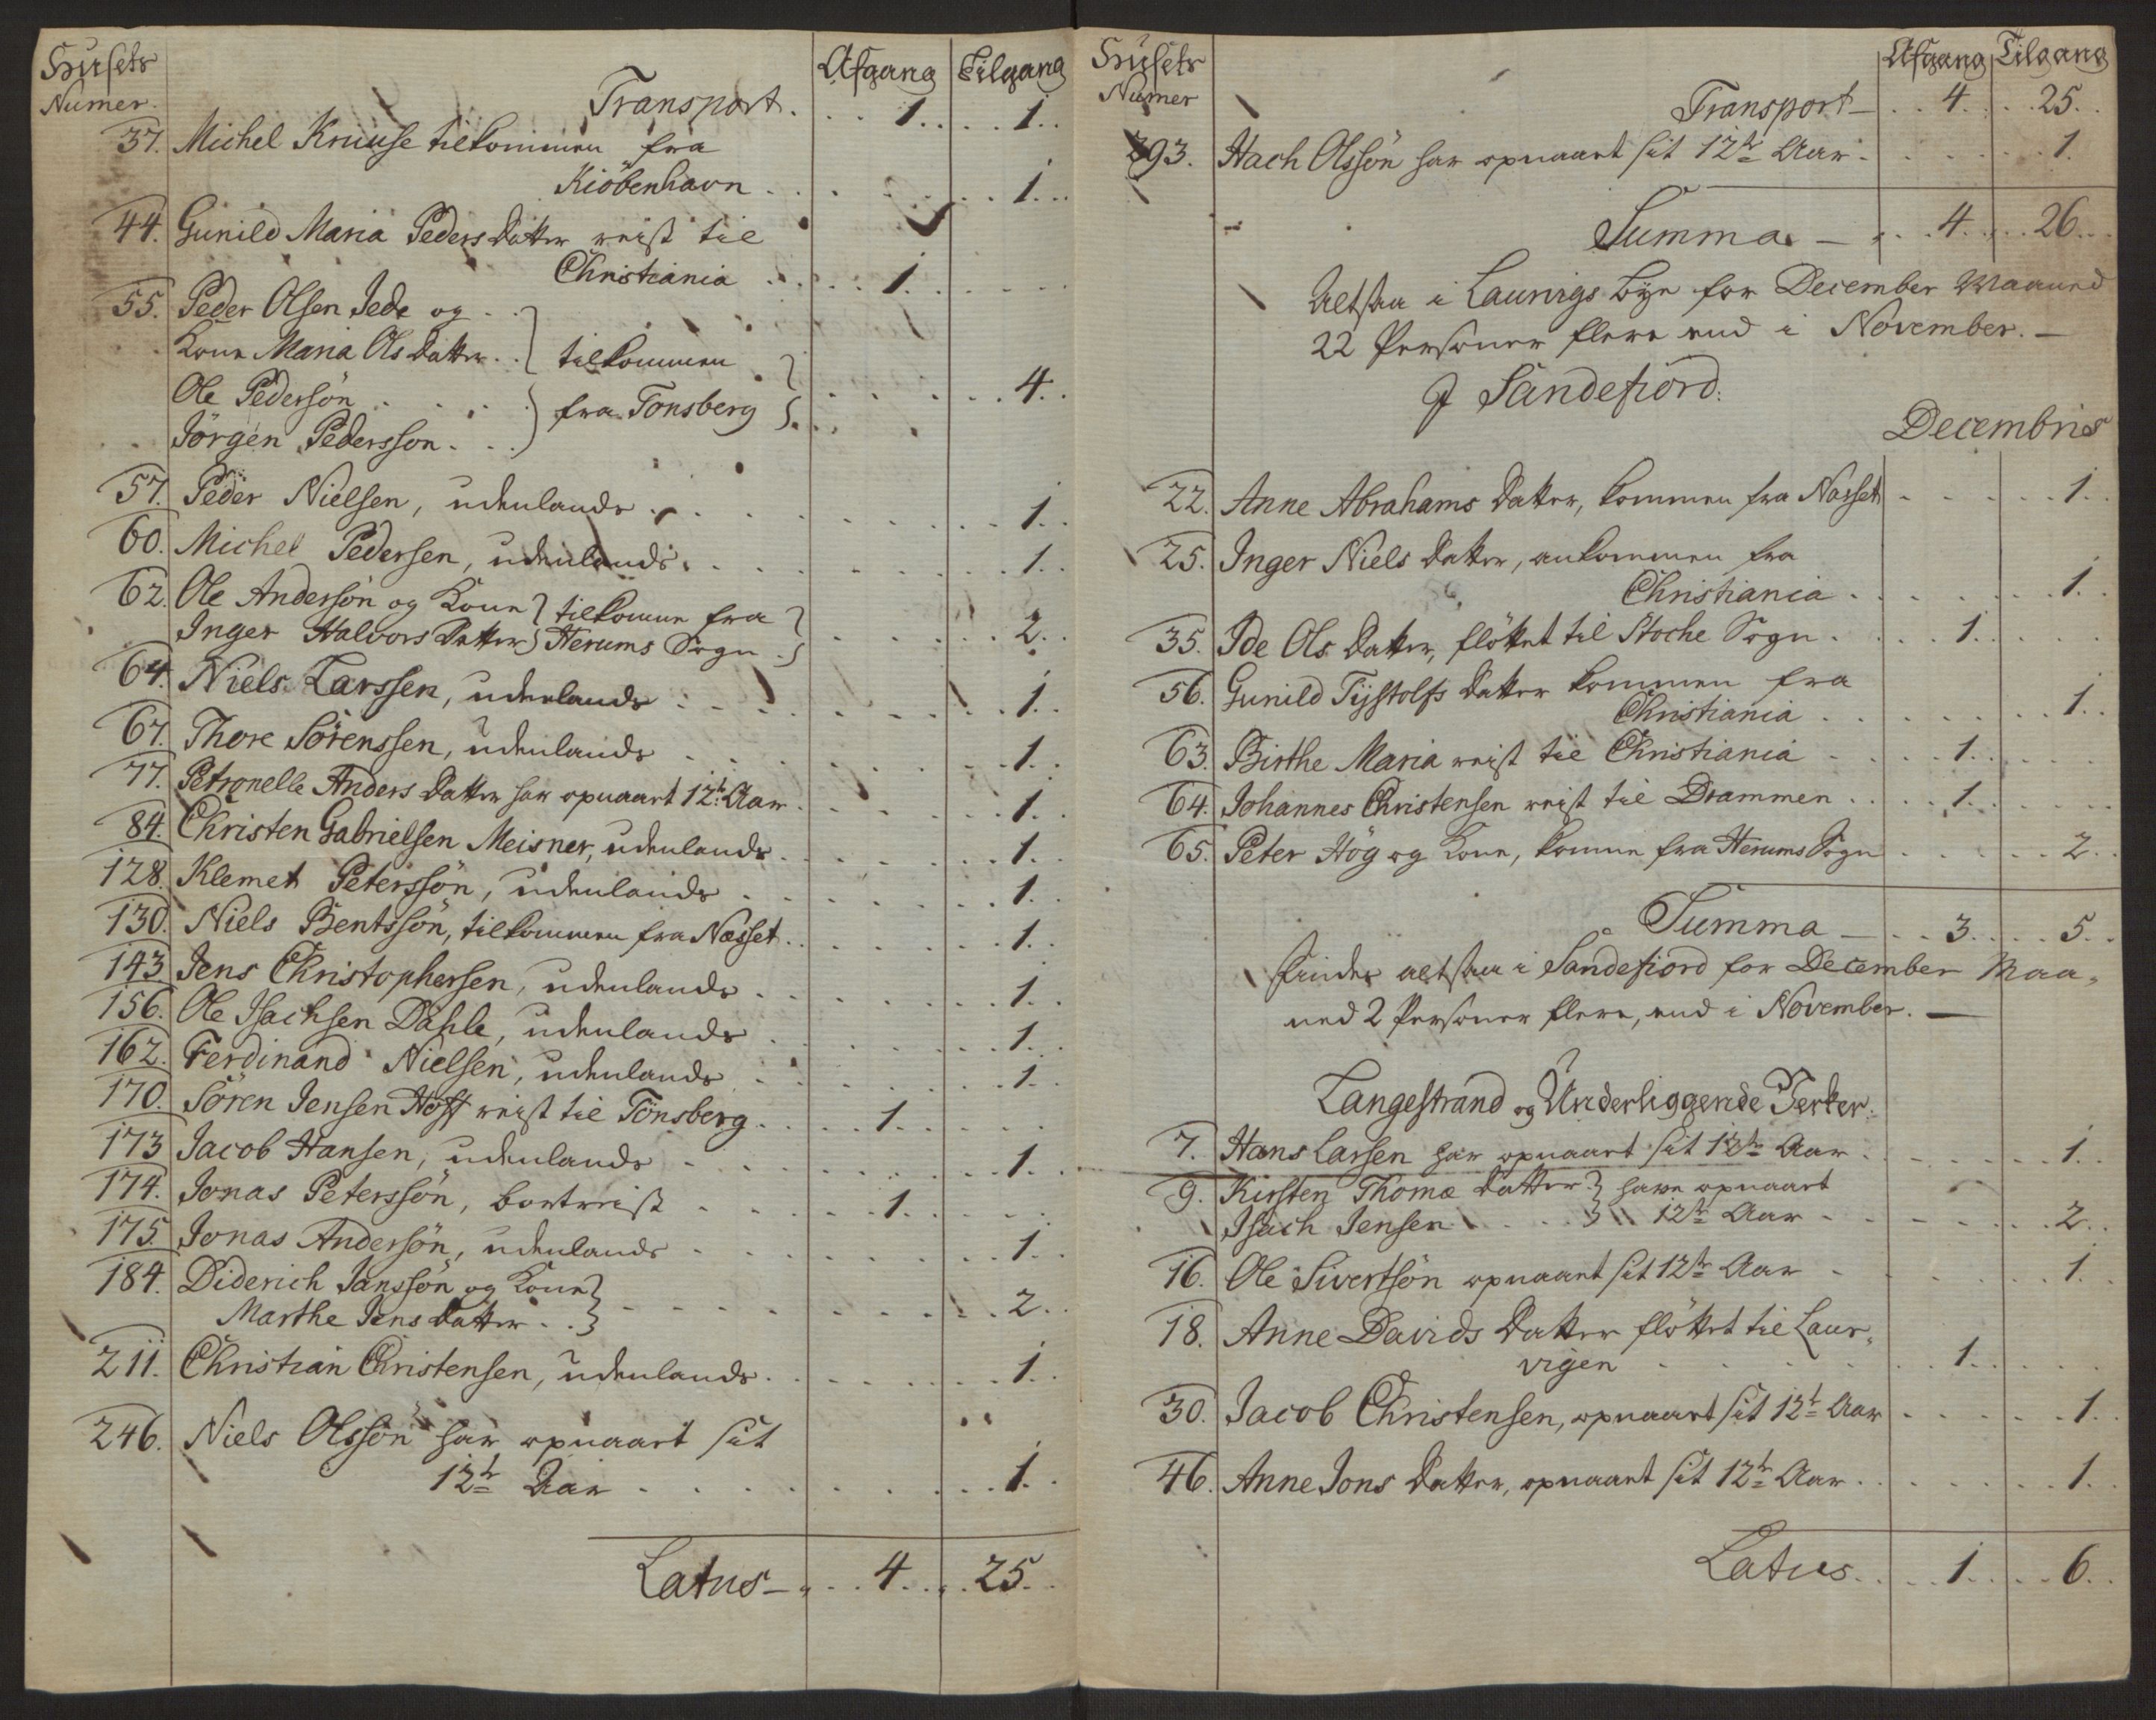 Husets Numer. Afgang Tilgang
Transport. . . 1. . . . 1. .
37. Michel Kruuse tilkommen fra
Kiöbenhavn . . . . . . . 1. . .
44. Gunild Maria Peders Datter reist til
Christiania . . . . 1. . . . .
55. Peder Olsen Jede og . .
Kone Maria Ols Datter. . tilkommen
Ole Pedersön . . . . fra Tonsberg . . . . . 4. .
Jörgen Pedersson. . .
57. Peder Nielsen, udenlands . . . . . . . 1. .
60. Michel Pedersen, udenlands. . . . . . . 1. .
62. Ole Andersön og Kone tilkomne fra
Inger Halvors Datter Herums Sogn . . . . . 2. .
64. Niels Larssen, udenlands . . . . . . . 1. .
67. Thore Sörenssen, udenlands . . . . . . . 1. .
77. Petronelle Anders Datter har opnaaet 12te Aar . . . . 1. .
84. Christen Gabrielsen Meisner, udenlands . . . . . 1. .
128. Klemet Peterssön, udenlands . . . . . . 1. .
130. Niels Bentssön, tilkommen fra Næsset. . . . . . 1. .
143. Jens Christophersen, udenlands . . . . . . 1. .
156. Ole Isachsen Dahle, udenlands . . . . . . 1. .
162. Ferdinand Nielsen, udenlands . . . . . . 1. .
170. Sören Jensen Hoff reist til Tönsberg. . . . 1. . . . .
173 Jacob Hansen, udenlands . . . . . . . 1. .
174. Jonas Peterssön, bortreist . . . . . 1. . . . .
175. Jonas Andersön, udenlands . . . . . . . 1. .
184. Diderich Janssön og Kone
Marthe Jens Datter . . . . . . . . . 2. .
211. Christian Christensen, udenlands. . . . . . 1. .
246. Niels Olssön har opnaaet sit
12te Aar . . . . . . . . . 1. .
Latus — . . 4. . . . 25. .
Husets Numer Afgang Tilgang
Transport — . . 4. . . . 25. .
293. Hach Olssön har opnaaet sit 12te Aar . . . . . . 1.
Summa — . . 4. . . . 26. .
Altsaa i Laurvigs Bye for December Maaned
22 Personer flere end i November. —
I Sandefiord.
Decembris
22. Anne Abrahams Datter, kommen fra Næsset . . . . . 1. .
25. Inger Niels Datter, ankommen fra
Christiania . . . . . . . 1. .
35. Ide Ols Datter, flöttet til Stoche Sogn . . . . 1. . . . .
56. Gunild Tystolfs Datter kommen fra
Christiania . . . . . . . 1. .
63. Birthe Maria reist til Christiania . . . 1. . . . .
64. Johannes Christensen reist til Drammen . . . . 1. . . . .
65. Peter Hög og Kone, komne fra Herums Sogn . . . . . 2. .
Summa — . . 3. . . . 5. .
findes altsaa i Sandefiord for December Maa-
ned 2 Personer flere, end i November. —
Langestrand og Underliggende Verker.
7. Hans Larsen har opnaaet sit 12te Aar . . . . . . 1. .
9. Kirsten Thomæ Datter have opnaaet
Isach Jensen . . . . 12te Aar . . . . . . 2. .
16. Ole Sivertsön opnaaet sit 12te Aar . . . . . . 1. .
18. Anne Davids Datter flöttet til Laur-
vigen . . . . . . 1. . . . .
30. Jacob Christensen, opnaaet sit 12te Aar . . . . . 1. .
46. Anne Jons Datter, opnaaet sit 12te Aar . . . . . . 1. .
Latus. . . . 1. . . . 6. .